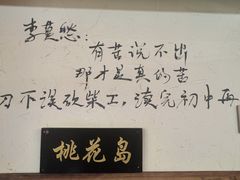 李莫愁：
有苦说不出
那才是真的苦
刀下误砍柴工，读完初中再
桃花岛